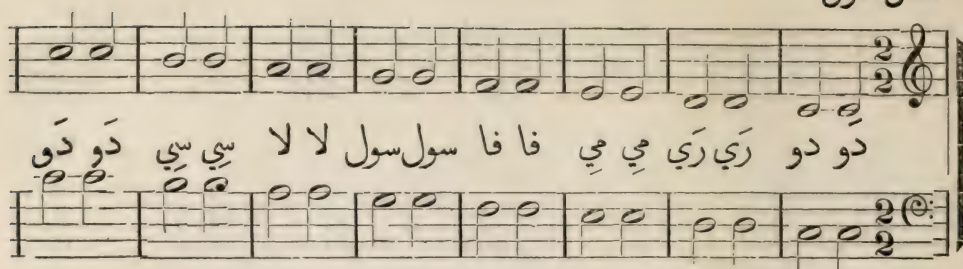 دو دو رَي رَي مِي مِي فا فا سول سول لا لا سِي سِي دَو دَو